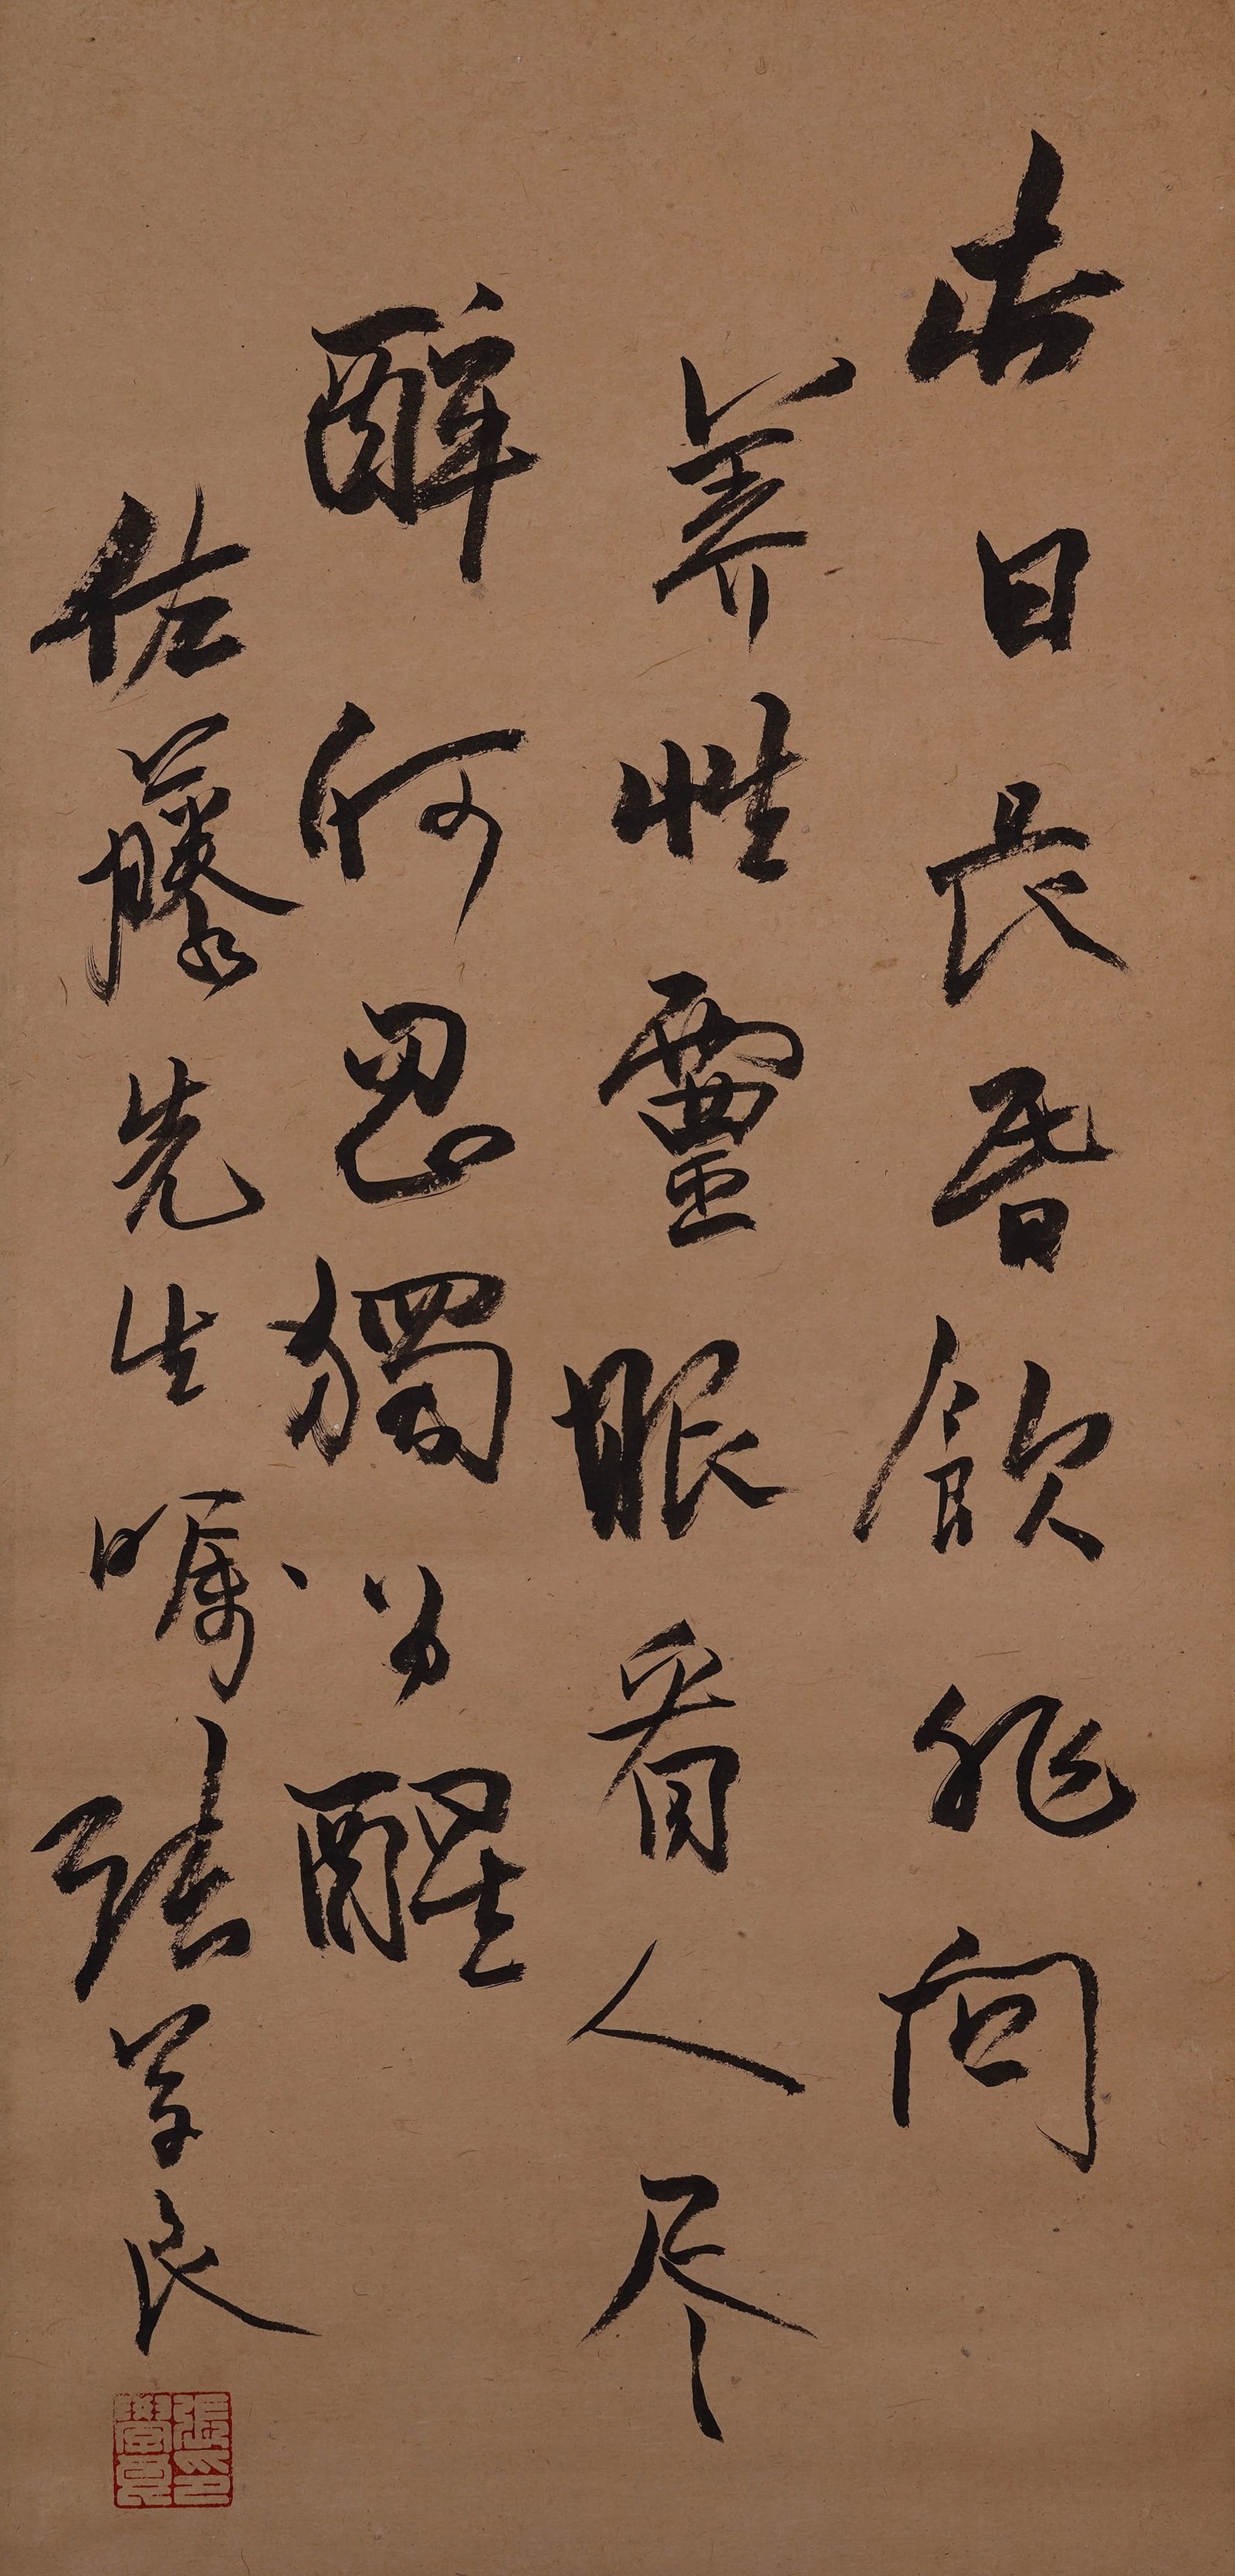 此日長昏飲非向
養性靈眼看人盡
醉何忍獨為醒
佐藤先生囑張學良
張學良印